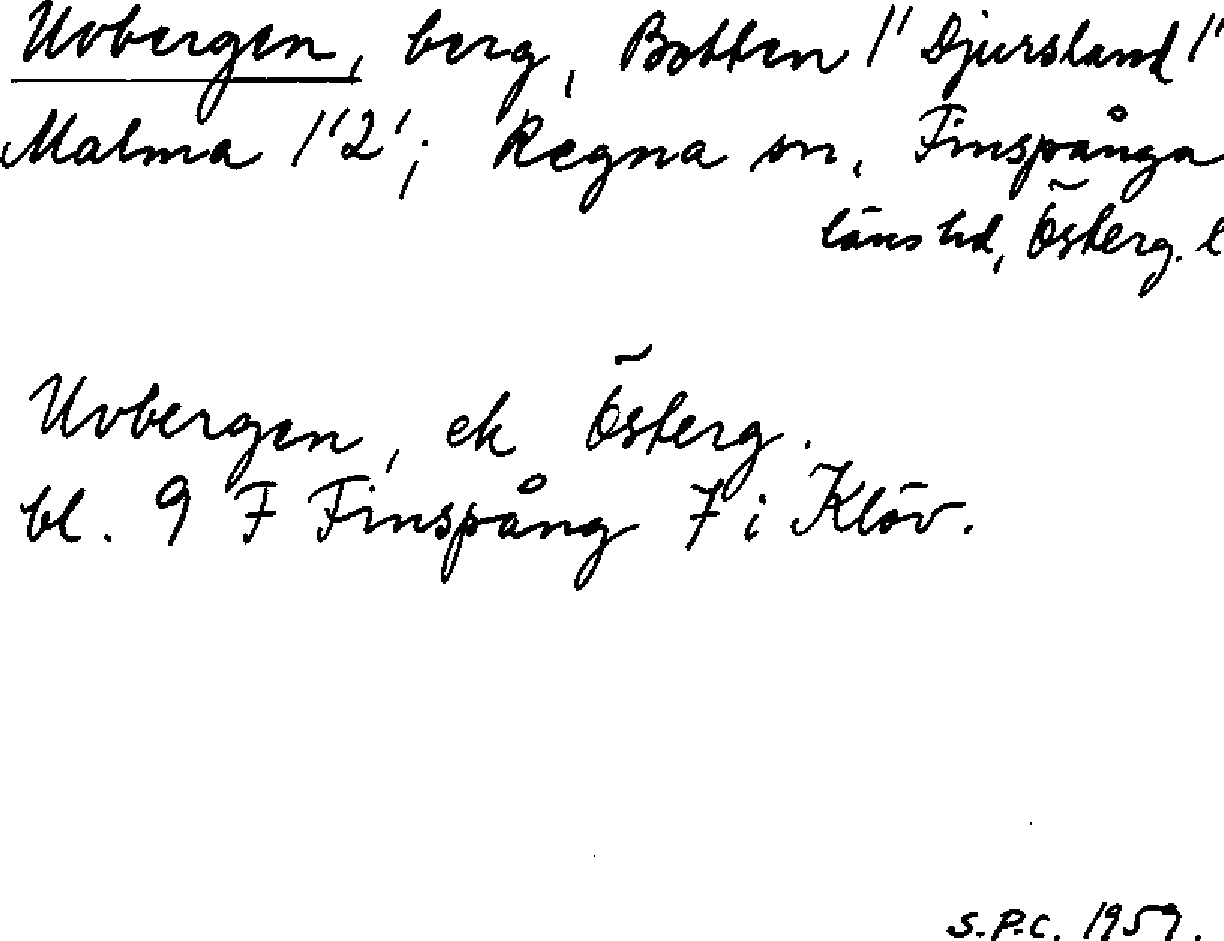 Uvbergen, berg, Botten 1' Djursland 1'
Malma 1'2'; Regna sn, Finspånga
läns hd, Österg. l
Uvbergen, ek Österg.
bl. 9 F Finspång 7 i Klöv.
S.P.C. 1959.